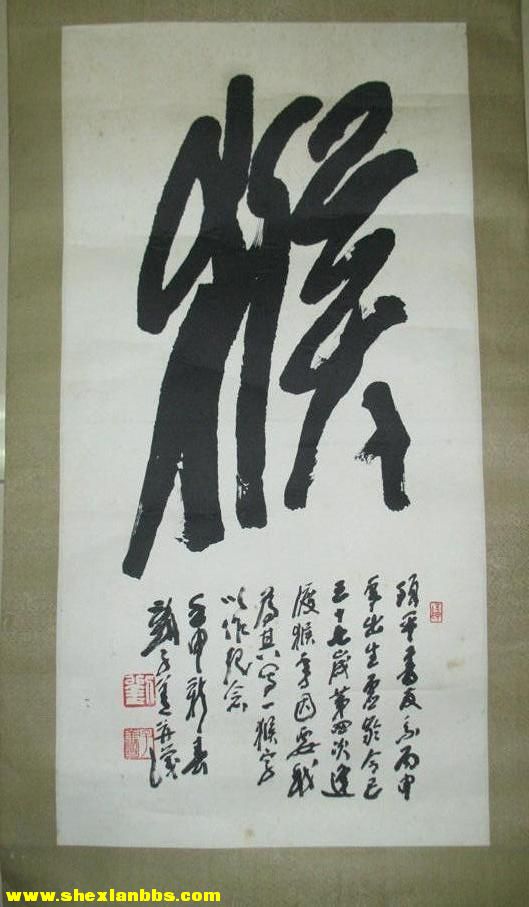 猴
平書友系丙申
年出生虚龄今已
三十七岁第四次
猴年因要我
為其写一猴字
以作纪念
壬申新春
劉子善并
劉
www.shexianbbs.com